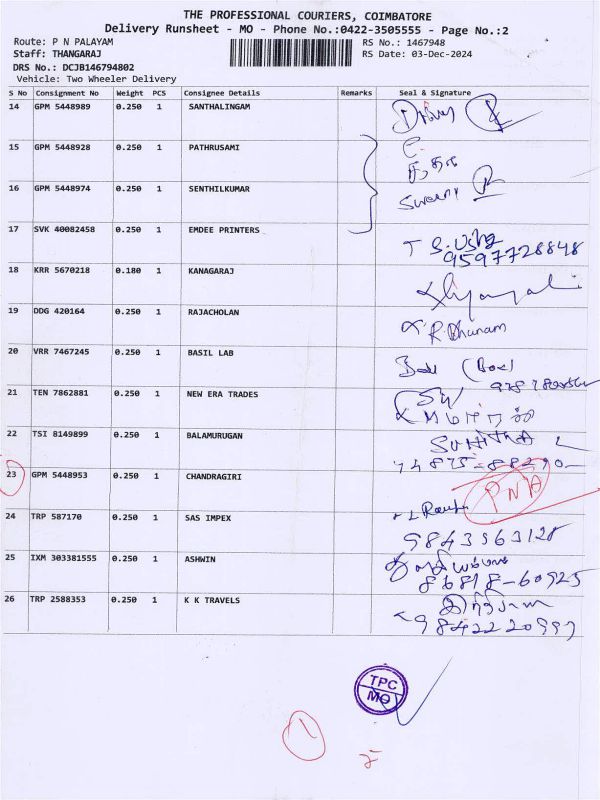 THE PROFESSIONAL COURIERS, COIMBATORE
Delivery Runsheet - MO - Phone No.:0422-3505555 - Page No.:2
Route: P N PALAYAM RS No.: 1467948
Staff: THANGARAJ RS Date: 03-Dec-2024
DRS No.: DCJB146794802
Vehicle: Two Wheeler Delivery
S No Consignment No Weight PCS Consignee Details Remarks Seal & Signature
14 GPM 5448989 0.250 1 SANTHALINGAM
15 GPM 5448928 0.250 1 PATHRUSAMI
16 GPM 5448974 0.250 1 SENTHILKUMAR
17 SVK 40082458 0.250 1 EMDEE PRINTERS T S.Usha
9597728848
18 KRR 5670218 0.180 1 KANAGARAJ
19 DDG 420164 0.250 1 RAJACHOLAN R Dhanam
20 VRR 7467245 0.250 1 BASIL LAB (Box)
21 TEN 7862881 0.250 1 NEW ERA TRADES
22 TSI 8149899 0.250 1 BALAMURUGAN SUNITHA
74 875-88290
23 GPM 5448953 0.250 1 CHANDRAGIRI PNA
24 TRP 587170 0.250 1 SAS IMPEX
9843963128
25 IXM 303381555 0.250 1 ASHWIN
86818-60925
26 TRP 2588353 0.250 1 K K TRAVELS
9842220997
TPC
MO
1